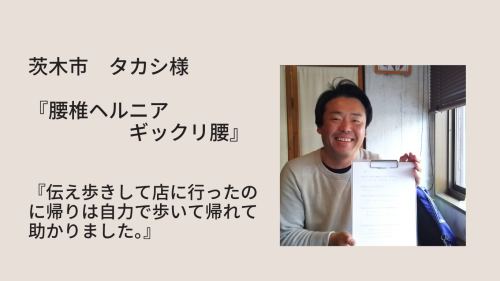 茨木市　タカシ様
『腰椎ヘルニア
ギックリ腰』
『伝え歩きして店に行ったの
に帰りは自力で歩いて帰れて
助かりました。』